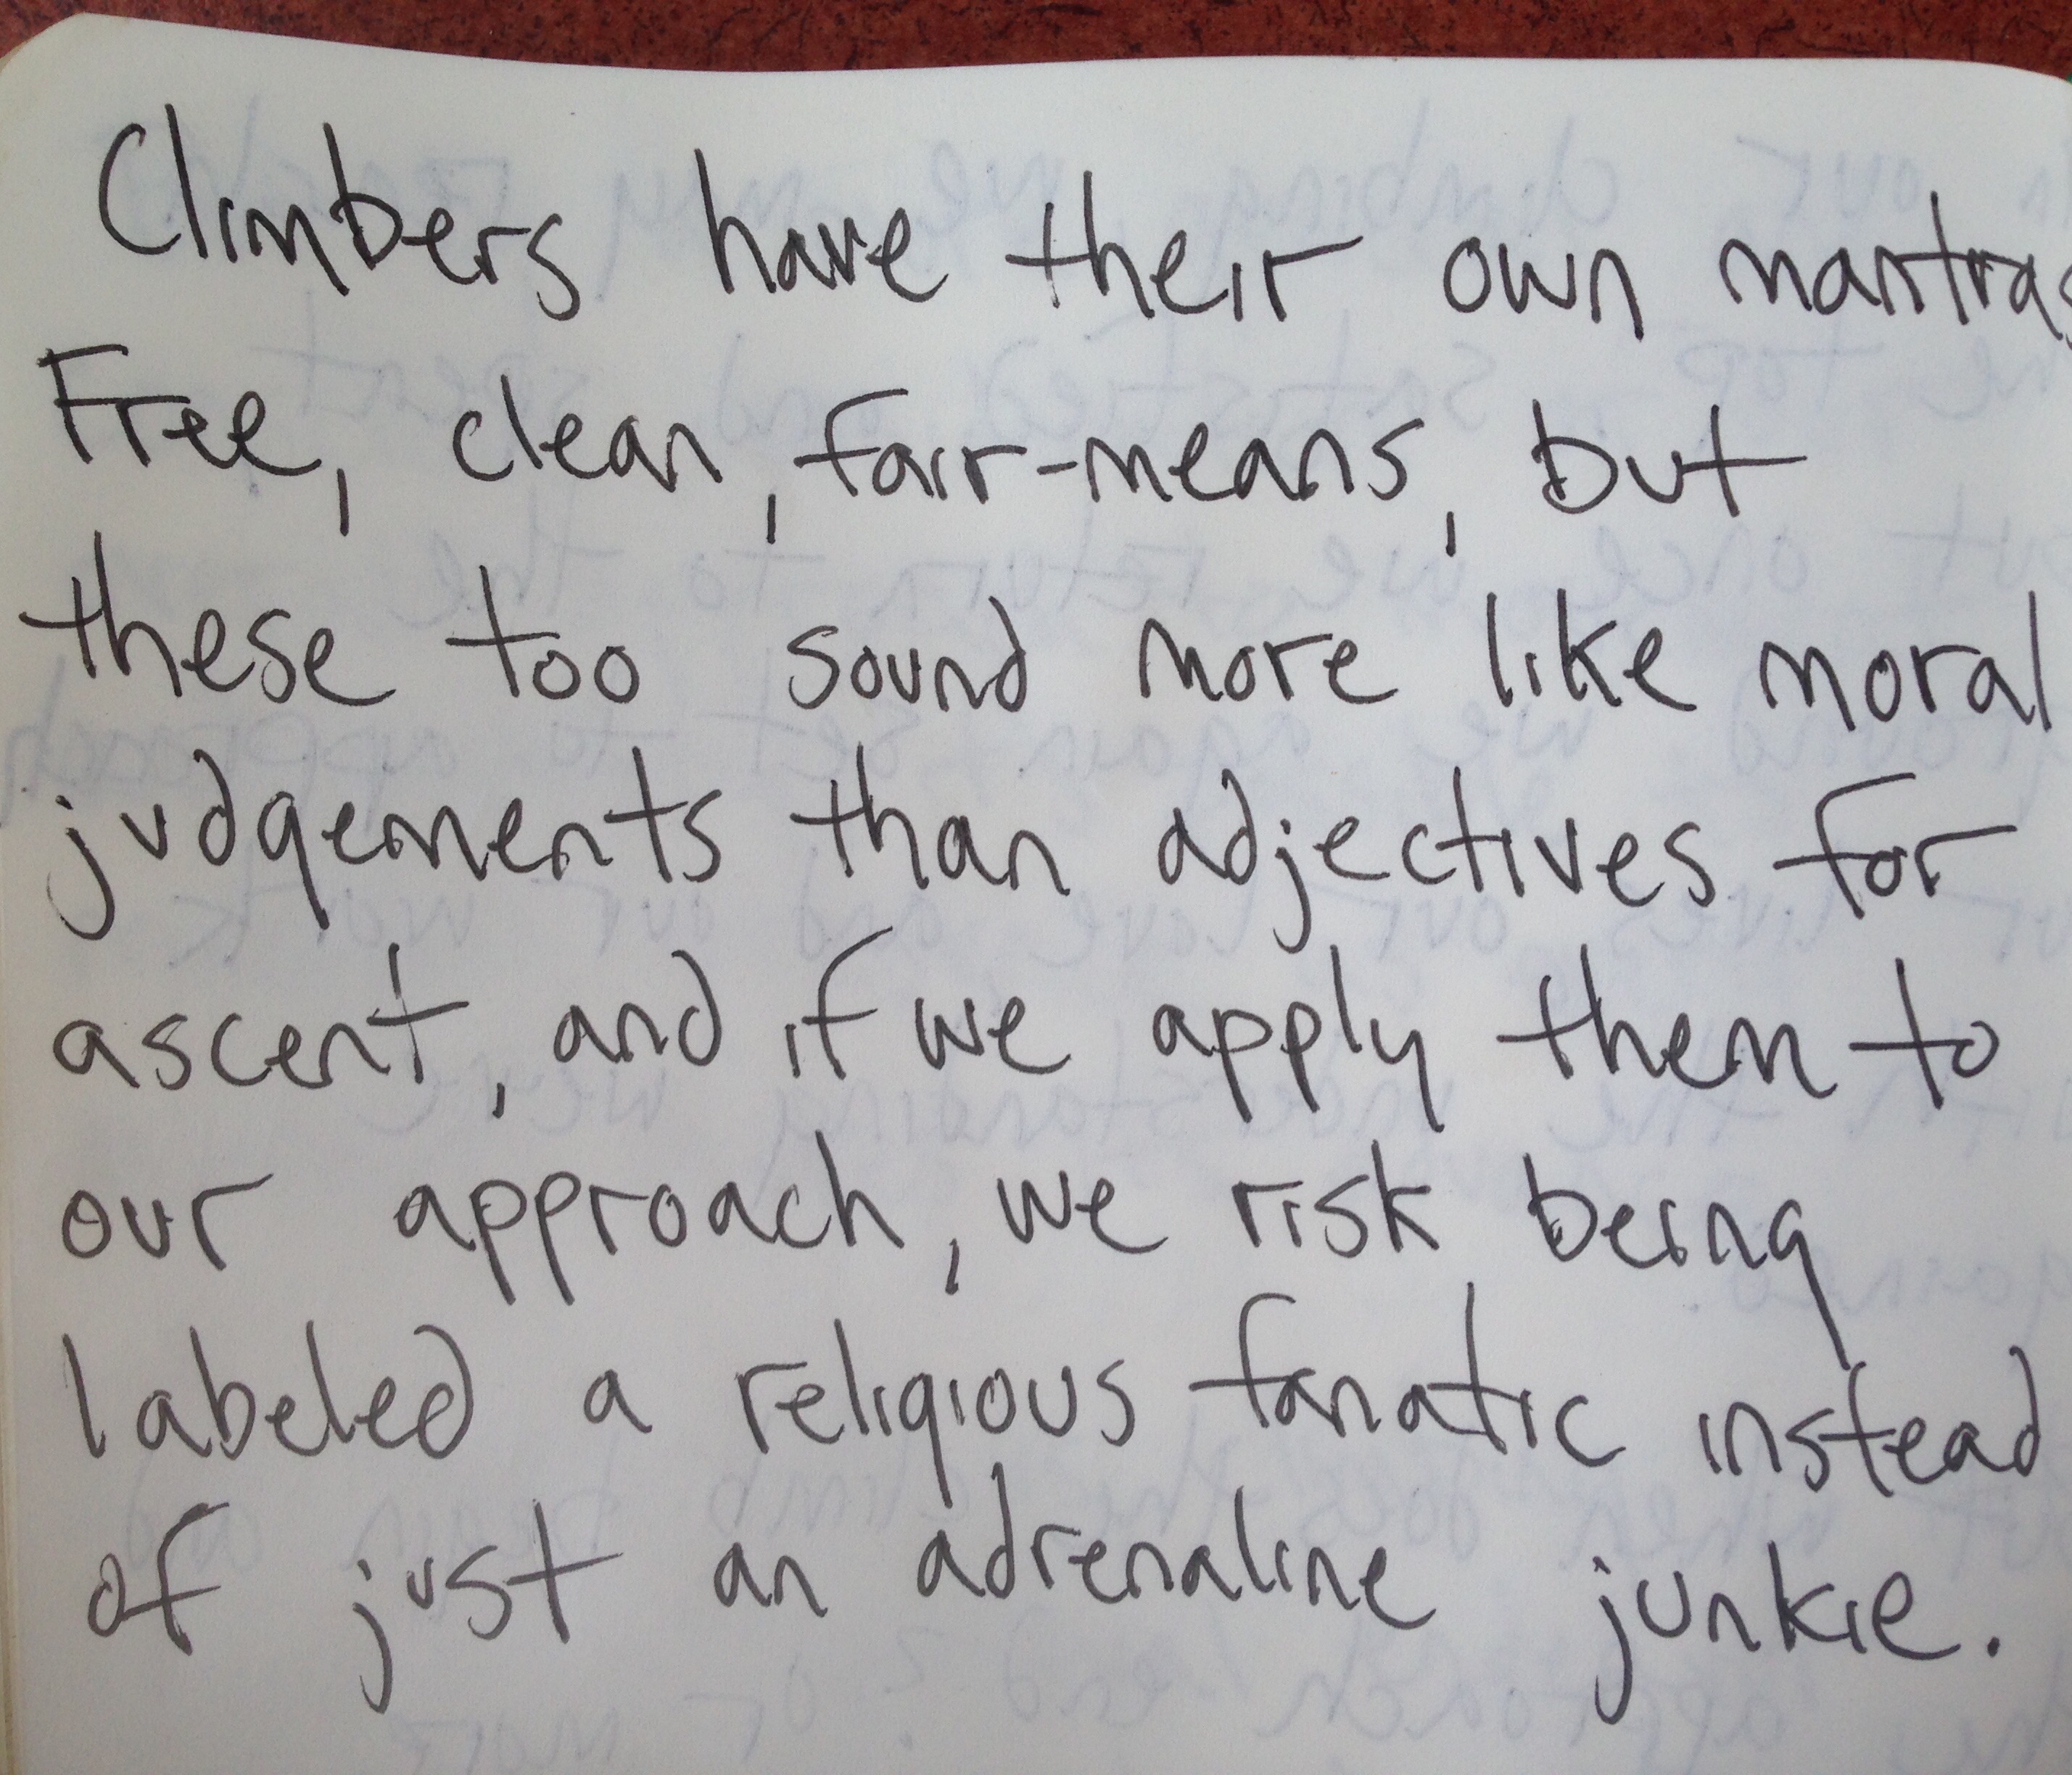 Climbers have their own mantras
Free, clean, fair-means, but
these too sound more like moral
judgements than adjectives for
ascent, and if we apply them to
our approach, we risk being
labeled a religious fanatic instead
of just an adrenaline junkie.